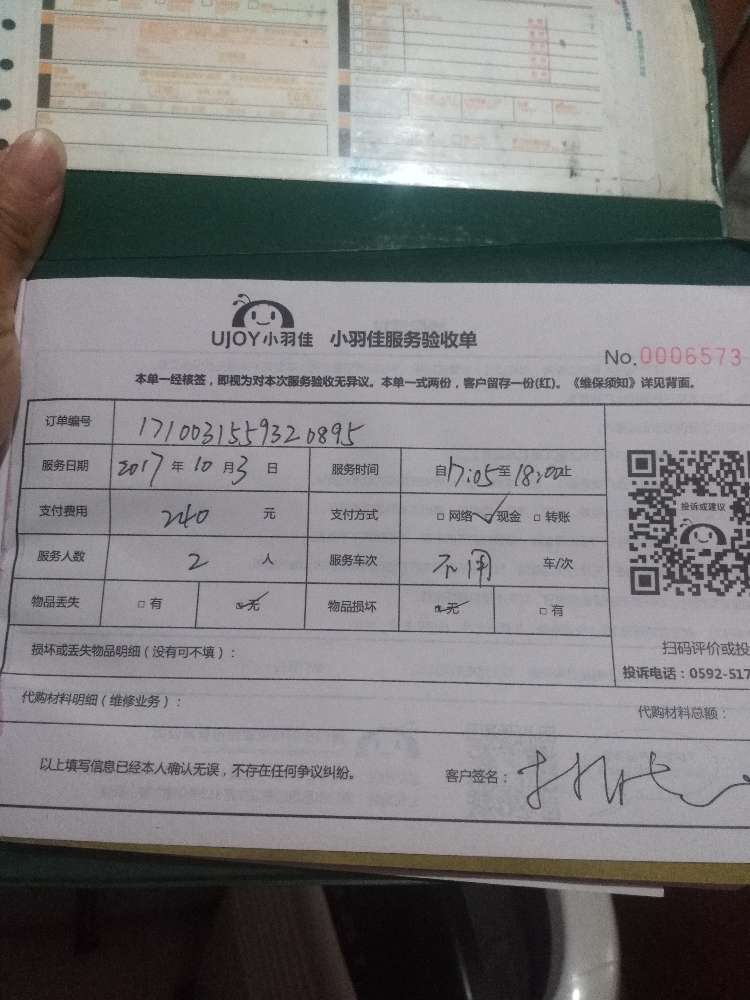 UJOY小羽佳 小羽佳服务验收单
No.0006573
本单一经核签，即视为对本次服务验收无异议。本单一式两份，客户留存一份(红)。《维保须知》详见背面。
订单编号 1710031559320895
服务日期 2017年10月3日 服务时间 自17:05至18:00止
支付费用 240元 支付方式 □网络 ☑现金 □转账
服务人数 2人 服务车次 不用 车/次
物品丢失 □有 ☑无 物品损坏 ☑无 □有
投诉或建议
损坏或丢失物品明细（没有可不填）：
扫码评价或投
投诉电话：0592-517
代购材料明细（维修业务）：
代购材料总额：
以上填写信息已经本人确认无误，不存在任何争议纠纷。 客户签名：